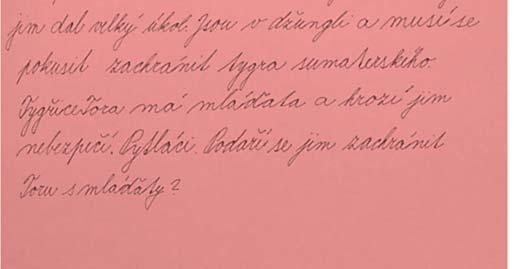 jim dal velký úkol. Jsou v džungli a musí se
pokusit zachránit tygra sumaterského.
Tygřice Tora má mláďata a hrozí jim
nebezpičí. Pytláci. Podaří se jim zachránit
Toru s mláďaty?